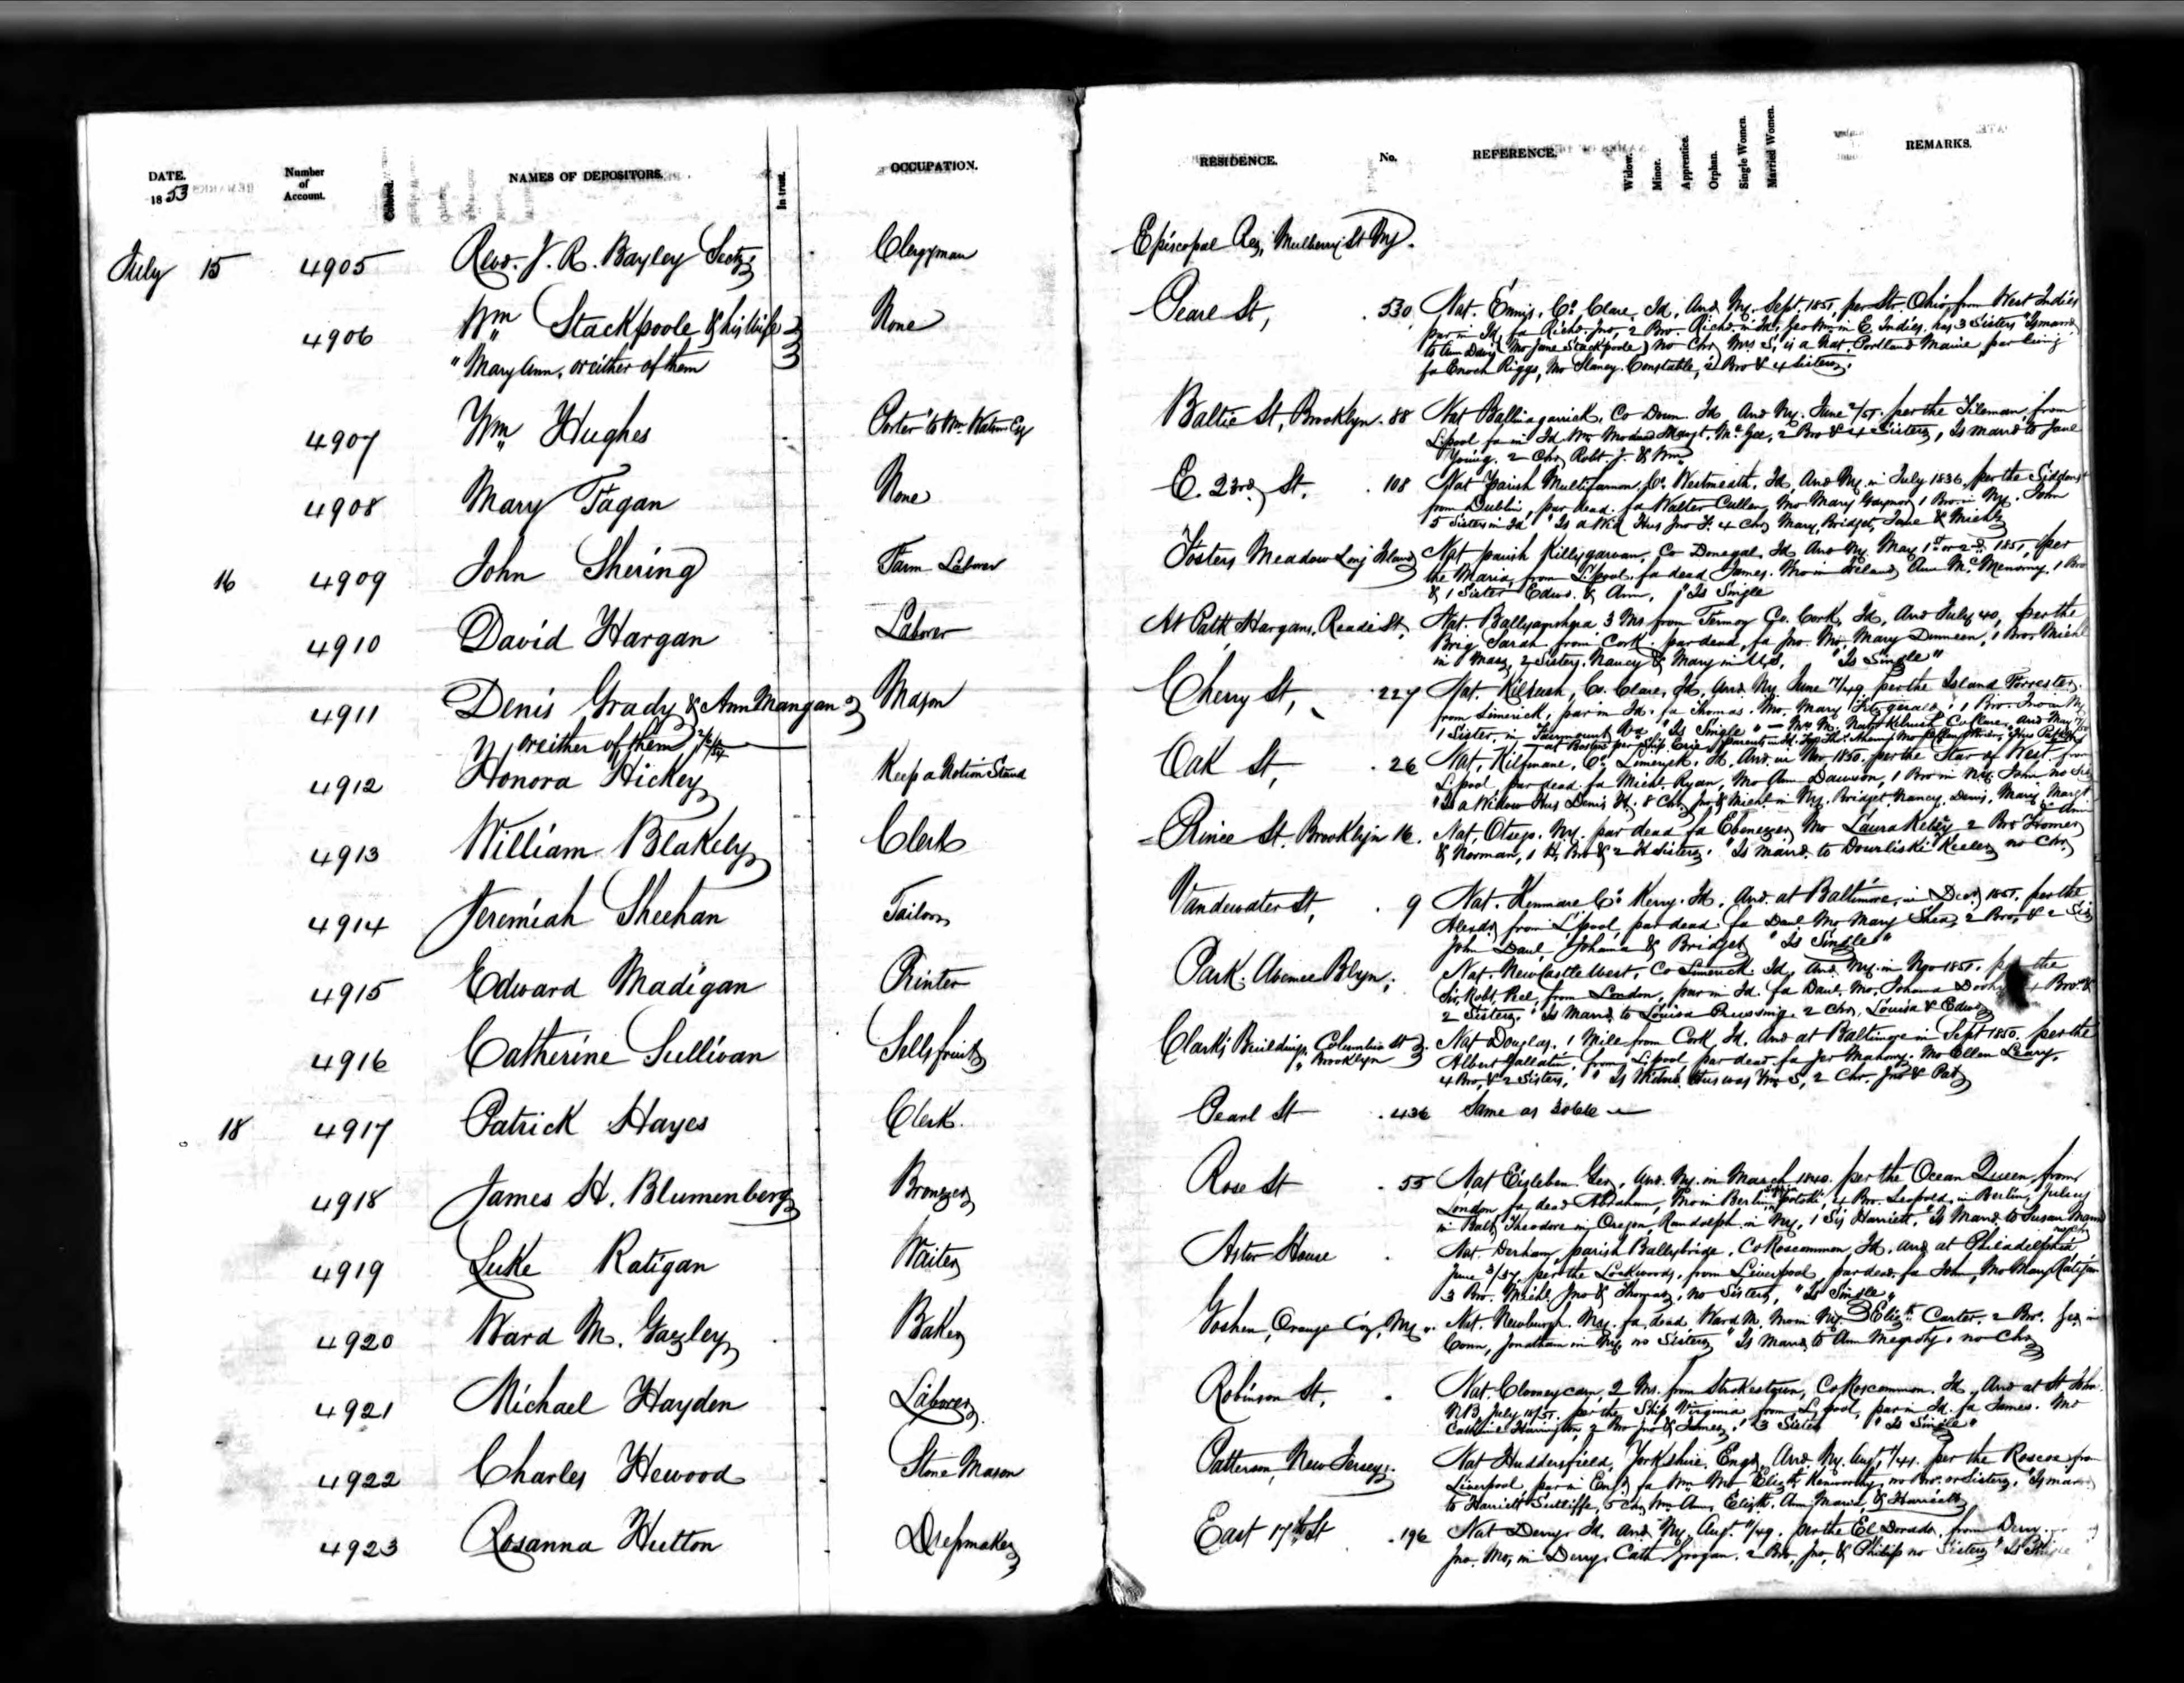 DATE. 1853
Number of Account.
Colored.
NAMES OF DEPOSITORS.
In trust.
OCCUPATION.
RESIDENCE.
No.
REFERENCE.
Widow.
Minor.
Apprentice.
Orphan.
Single Women.
Married Women.
REMARKS.
July 15 4905 Revd. J. R. Bayley Secty Clergyman Episcopal Res, Mulberry St Ny.
4906 Wm Stackpoole & his wife None Pearl St, 530 Nat. Ennis, Co. Clare, Id, And Ny. Sept. 1851, per St. Ohio from West Indies
" Mary Ann, or either of them par in Id, fa Richd. Jno, 2 Bro. Richd. in Id, Geo Wm. in E. Indies, has 3 Sisters "Is marrd
to Ann Davis (Mo Jane Stackpoole) no Chn Mrs S, is a Nat. Portland Maine, par living
fa Enoch Riggs, Mo Constable, 2 Bro & 4 Sisters.
4907 Wm Hughes Porter to Wm. Watson Esq Baltic St, Brooklyn. 88 Nat Ballinagarrick, Co Down. Id, And Ny. June 2/51. per the Tileman from
L'pool fa in Id. Wm. Mo dead Margt. McGee, 2 Bro & 4 Sisters, Is marrd to Jane
Young. 2 Chn Robt. J. & Wm
4908 Mary Fagan None E. 23rd St. 108 Nat parish Multifarnon, Co. Westmeath, Id, And Ny. in July 1836, per the Siddons
from Dublin, par dead. fa Walter Cullen, Mo Mary Gaynor, 1 Bro in Ny. John
5 Sisters in Id "Is a Wid Hus Jno F. 4 Chn Mary, Bridget, Jane & Michl
16 4909 John Shering Farm Laborer Fosters Meadow Long Island Nat parish Killygarvan, Co Donegal, Id And Ny. May 1st or 2nd 1851, per
the Maria, from L'pool, fa dead James. Mo in Ireland Ann McMenomy, 1 Bro
& 1 Sister Edwd. & Ann, "Is Single
4910 David Hargan Laborer At Patk Hargans, Reade St, Nat. 3 Ms from Fermoy Co. Cork, Id, And July 40, per the
Brig Sarah from Cork. par dead, fa Jno. Mo. Mary Dunneen, 1 Bro. Michl
in Mass, 2 Sisters. Nancy & Mary in U.S, "Is Single"
4911 Denis Grady & Ann Mangan Mason Cherry St, 227 Nat. Kilrush, Co. Clare, Id, And. Ny. June 17/49 per the Island Forrester
or either of them from Limerick, par in Id. fa Thomas. Mo. Mary Fitzgerald, 1 Bro. Jno in Ny
1 Sister in Fairmount Va. "Is Single" — Mrs M. Nat. Kilrush Co Clare, And May
at Boston per Ship Erie, parents in Id.
4912 Honora Hickey Keeps a Notion Stand Oak St, 26 Nat, Kilfinane, Co. Limerick, Id, And. in Nov 1850. per the Star of West. from
L'pool, par dead. fa Michl. Ryan, Mo Ann Dawson, 1 Bro in Ny. John no Sis
"Is a Widow Hus Denis H. 8 Chn Jno & Michl in Ny. Bridget, Nancy, Denis, Mary, Margt
& Ann
4913 William Blakely Clerk Prince St. Brooklyn 16. Nat, Otsego. Ny. par dead fa Ebenezer, Mo Laura Kelsey 2 Bro Homer
& Norman, 1 H, Bro & 2 H Sisters. "Is Marrd. to Keeler no Chn
4914 Jeremiah Sheehan Tailor Vandewater St, 9 Nat. Kenmare Co. Kerry. Id, And. at Baltimore, in Decr 1851. per the
Alexdr from L'pool, par dead fa Danl Mo Mary Shea, 2 Bro. & 2 Sis
John Danl, Johana & Bridget "Is Single"
4915 Edward Madigan Printer Park. Avenue Blyn, Nat. Newcastle West. Co Limerick. Id, And. Ny. in Nov 1851. per the
Sir, Robt. Peel, from London, par in Id. fa Danl. Mo. Johana 4 Bro. &
2 Sisters. "Is Marrd to Louisa 2 Chn. Louisa & Edwd
4916 Catherine Sullivan Sells fruit Clarks Buildings, Columbia St Nat Douglas. 1 Mile from Cork Id, And at Baltimore in Sept 1850. per the
" Brooklyn Albert Gallatin. from L'pool par dead. fa Jer Mahony. Mo Ellen Leary,
4 Bro, & 2 Sisters, "Is Widow Hus was Wm S, 2 Chn. Jno & Pat
18 4917 Patrick Hayes Clerk. Pearl St 436 Same as
4918 James H. Blumenberg Bronzer Rose St 55 Nat Eisleben. Ger, And. Ny. in March 1840. per the Ocean Queen from
London, fa dead Abraham, Mo in Berlin, 4 Bro. Leopold, in Berlin, Julius
in Balt, Theodore in Oregon, Randolph, in Ny, 1 Sis Harriett, "Is Marrd to Susan Mann
no Chn
4919 Luke Ratigan Waiter Astor House Nat. Derham, parish Ballybride, Co Roscommon, Id. And at Philadelphia
June 3/37, per the Lockwoods, from Liverpool, par dead. fa John, Mo Mary Ratigan
3 Bro. Michl. Jno & Thomas, no Sisters, "Is Single"
4920 Ward M. Gazley Baker Goshen, Orange Co, Ny. Nat. Newburgh. Ny. fa, dead, Ward M, Mo in Ny. Elizth Carter. 2 Bro. Geo in
Conn, Jonathan in Ny, no Sisters "Is Marrd to Ann Megroty. no Chn
4921 Michael Hayden Laborer Robinson St, Nat. 2 Ms. from Strokestown, Co Roscommon. Id, And at St John
N.B. July 14/51. per the Ship Virginia from L'pool, par in Id. fa James. Mo
Catherine Harrington, 2 Bro Jno & James, 3 Sisters "Is Single"
4922 Charles Hewood Stone Mason Patterson, New Jersey. Nat Huddersfield, Yorkshire, Engd, And. Ny. Augt /41. per the Roscoe from
Liverpool, par in Engd fa Wm. Mo Elizth Kenworthy, no Bro. or Sisters. "Is marrd
to Harriett Sutliffe, 5 Chn Wm. Ann, Elizth. Ann Maria, & Harriett
4923 Rosanna Hutton Dressmaker East 17th St 196 Nat Derry Id, And Ny, Augt. /49. per the El Dorado, from Derry.
Jno. Mo, in Derry. Cath Grogan. 2 Bro, Jno, & Philip no Sisters "Is Single